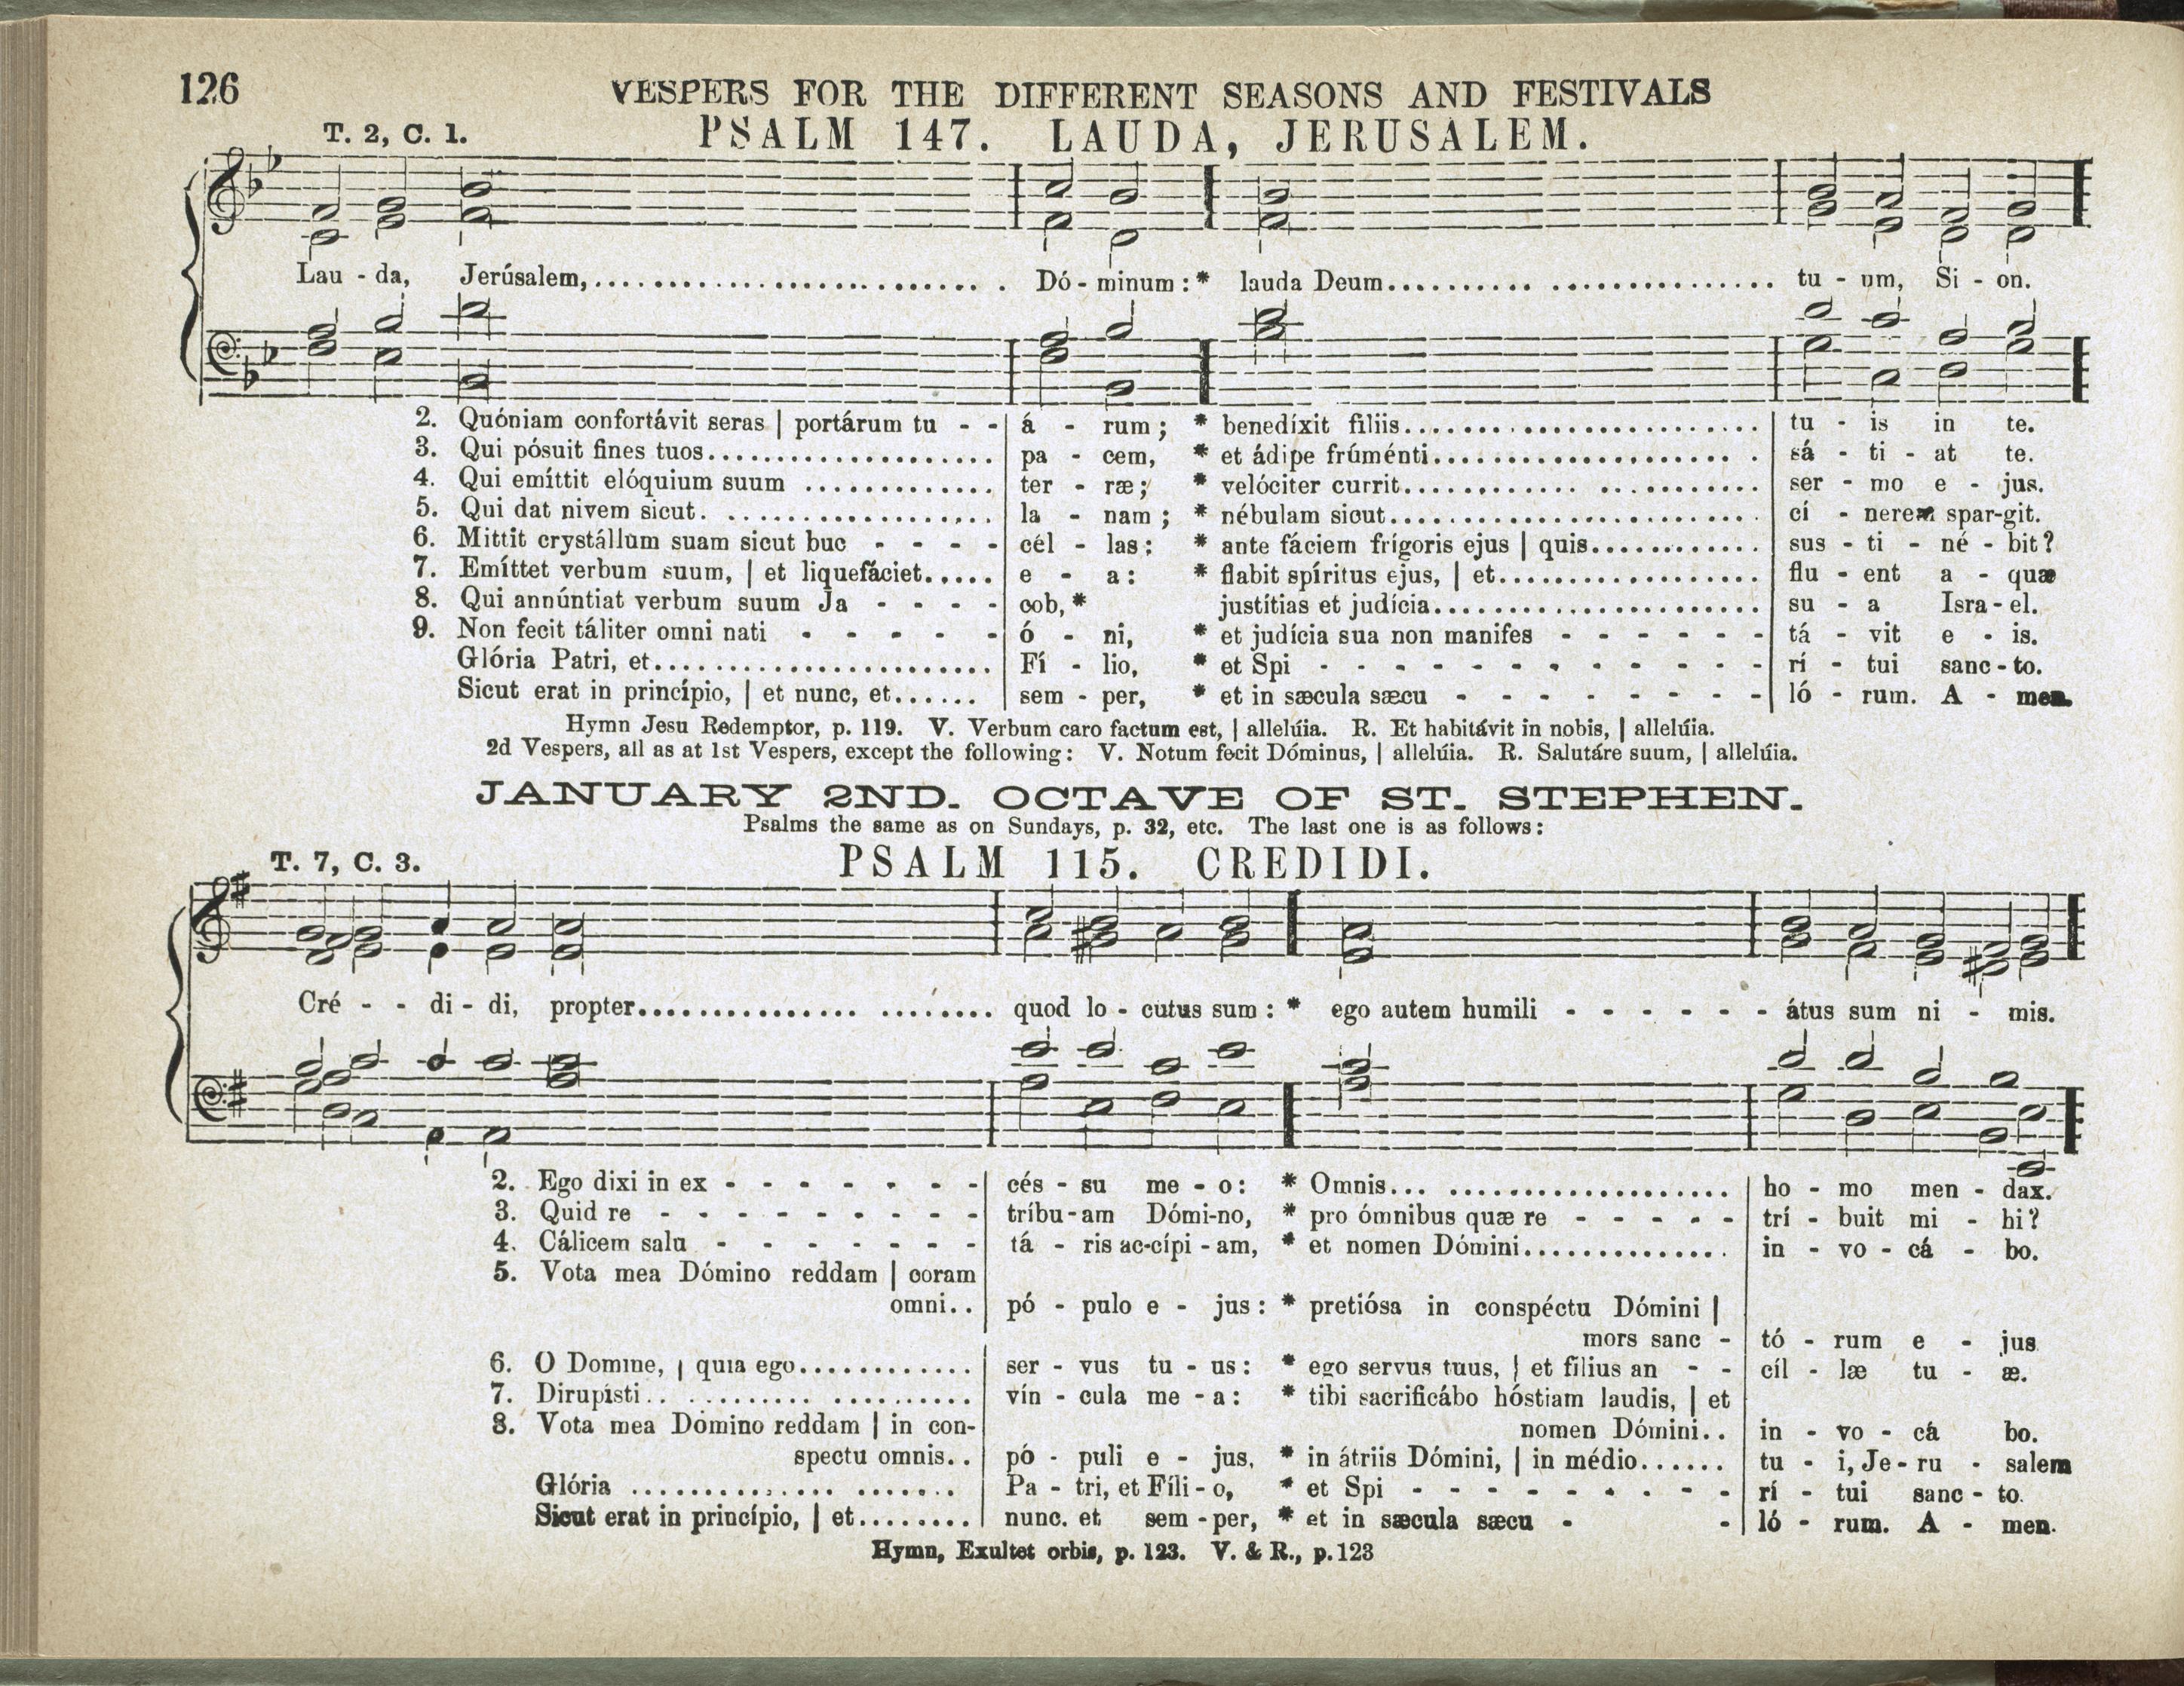 126
VESPERS FOR THE DIFFERENT SEASONS AND FESTIVALS
T. 2, C. 1.
PSALM 147. LAUDA, JERUSALEM.
Lau - da, Jerúsalem,........................... Dó - minum : * lauda Deum........................... tu - um, Si - on.
2. Quóniam confortávit seras | portárum tu - - | á - rum ; * benedíxit filiis........................ | tu - is in te.
3. Qui pósuit fines tuos................... | pa - cem, * et ádipe frúménti...................... | sá - ti - at te.
4. Qui emíttit elóquium suum ............. | ter - ræ ; * velóciter currit........................ | ser - mo e - jus.
5. Qui dat nivem sicut. .................. | la - nam ; * nébulam sicut......................... | cí - nerem spar-git.
6. Mittit crystállum suam sicut buc - - - - | cél - las : * ante fáciem frígoris ejus | quis............ | sus - ti - né - bit ?
7. Emíttet verbum suum, | et liquefáciet..... | e - a : * flabit spíritus ejus, | et.................. | flu - ent a - quæ
8. Qui annúntiat verbum suum Ja - - - - | cob, * justítias et judícia...................... | su - a Isra - el.
9. Non fecit táliter omni nati - - - - - | ó - ni, * et judícia sua non manifes - - - - - - | tá - vit e - is.
Glória Patri, et....................... | Fí - lio, * et Spi - - - - - - - - - - | rí - tui sanc - to.
Sicut erat in princípio, | et nunc, et...... | sem - per, * et in sæcula sæcu - - - - - - - | ló - rum. A - men.
Hymn Jesu Redemptor, p. 119. V. Verbum caro factum est, | allelúia. R. Et habitávit in nobis, | allelúia.
2d Vespers, all as at 1st Vespers, except the following : V. Notum fecit Dóminus, | allelúia. R. Salutáre suum, | allelúia.
JANUARY 2ND. OCTAVE OF ST. STEPHEN.
Psalms the same as on Sundays, p. 32, etc. The last one is as follows :
T. 7, C. 3.
PSALM 115. CREDIDI.
Cré - - di - di, propter........................ quod lo - cutus sum : * ego autem humili - - - - - - átus sum ni - mis.
2. Ego dixi in ex - - - - - - - | cés - su me - o : * Omnis... ................... | ho - mo men - dax.
3. Quid re - - - - - - - - - | tríbu - am Dómi-no, * pro ómnibus quæ re - - - - - | trí - buit mi - hi ?
4. Cálicem salu - - - - - - - | tá - ris ac-cípi - am, * et nomen Dómini.............. | in - vo - cá - bo.
5. Vota mea Dómino reddam | coram
omni.. | pó - pulo e - jus : * pretiósa in conspéctu Dómini |
mors sanc - | tó - rum e - jus
6. O Domine, | quia ego............ | ser - vus tu - us : * ego servus tuus, | et filius an - - | cíl - læ tu - æ.
7. Dirupísti.. .................... | vín - cula me - a : * tibi sacrificábo hóstiam laudis, | et
8. Vota mea Domino reddam | in con- nomen Dómini.. | in - vo - cá bo.
spectu omnis.. | pó - puli e - jus, * in átriis Dómini, | in médio...... | tu - i, Je - ru - salem
Glória ...................... | Pa - tri, et Fíli - o, * et Spi - - - - - - - - - | rí - tui sanc - to.
Sicut erat in princípio, | et........ | nunc. et sem - per, * et in sæcula sæcu - - | ló - rum. A - men.
Hymn, Exultet orbis, p. 123. V. & R., p. 123